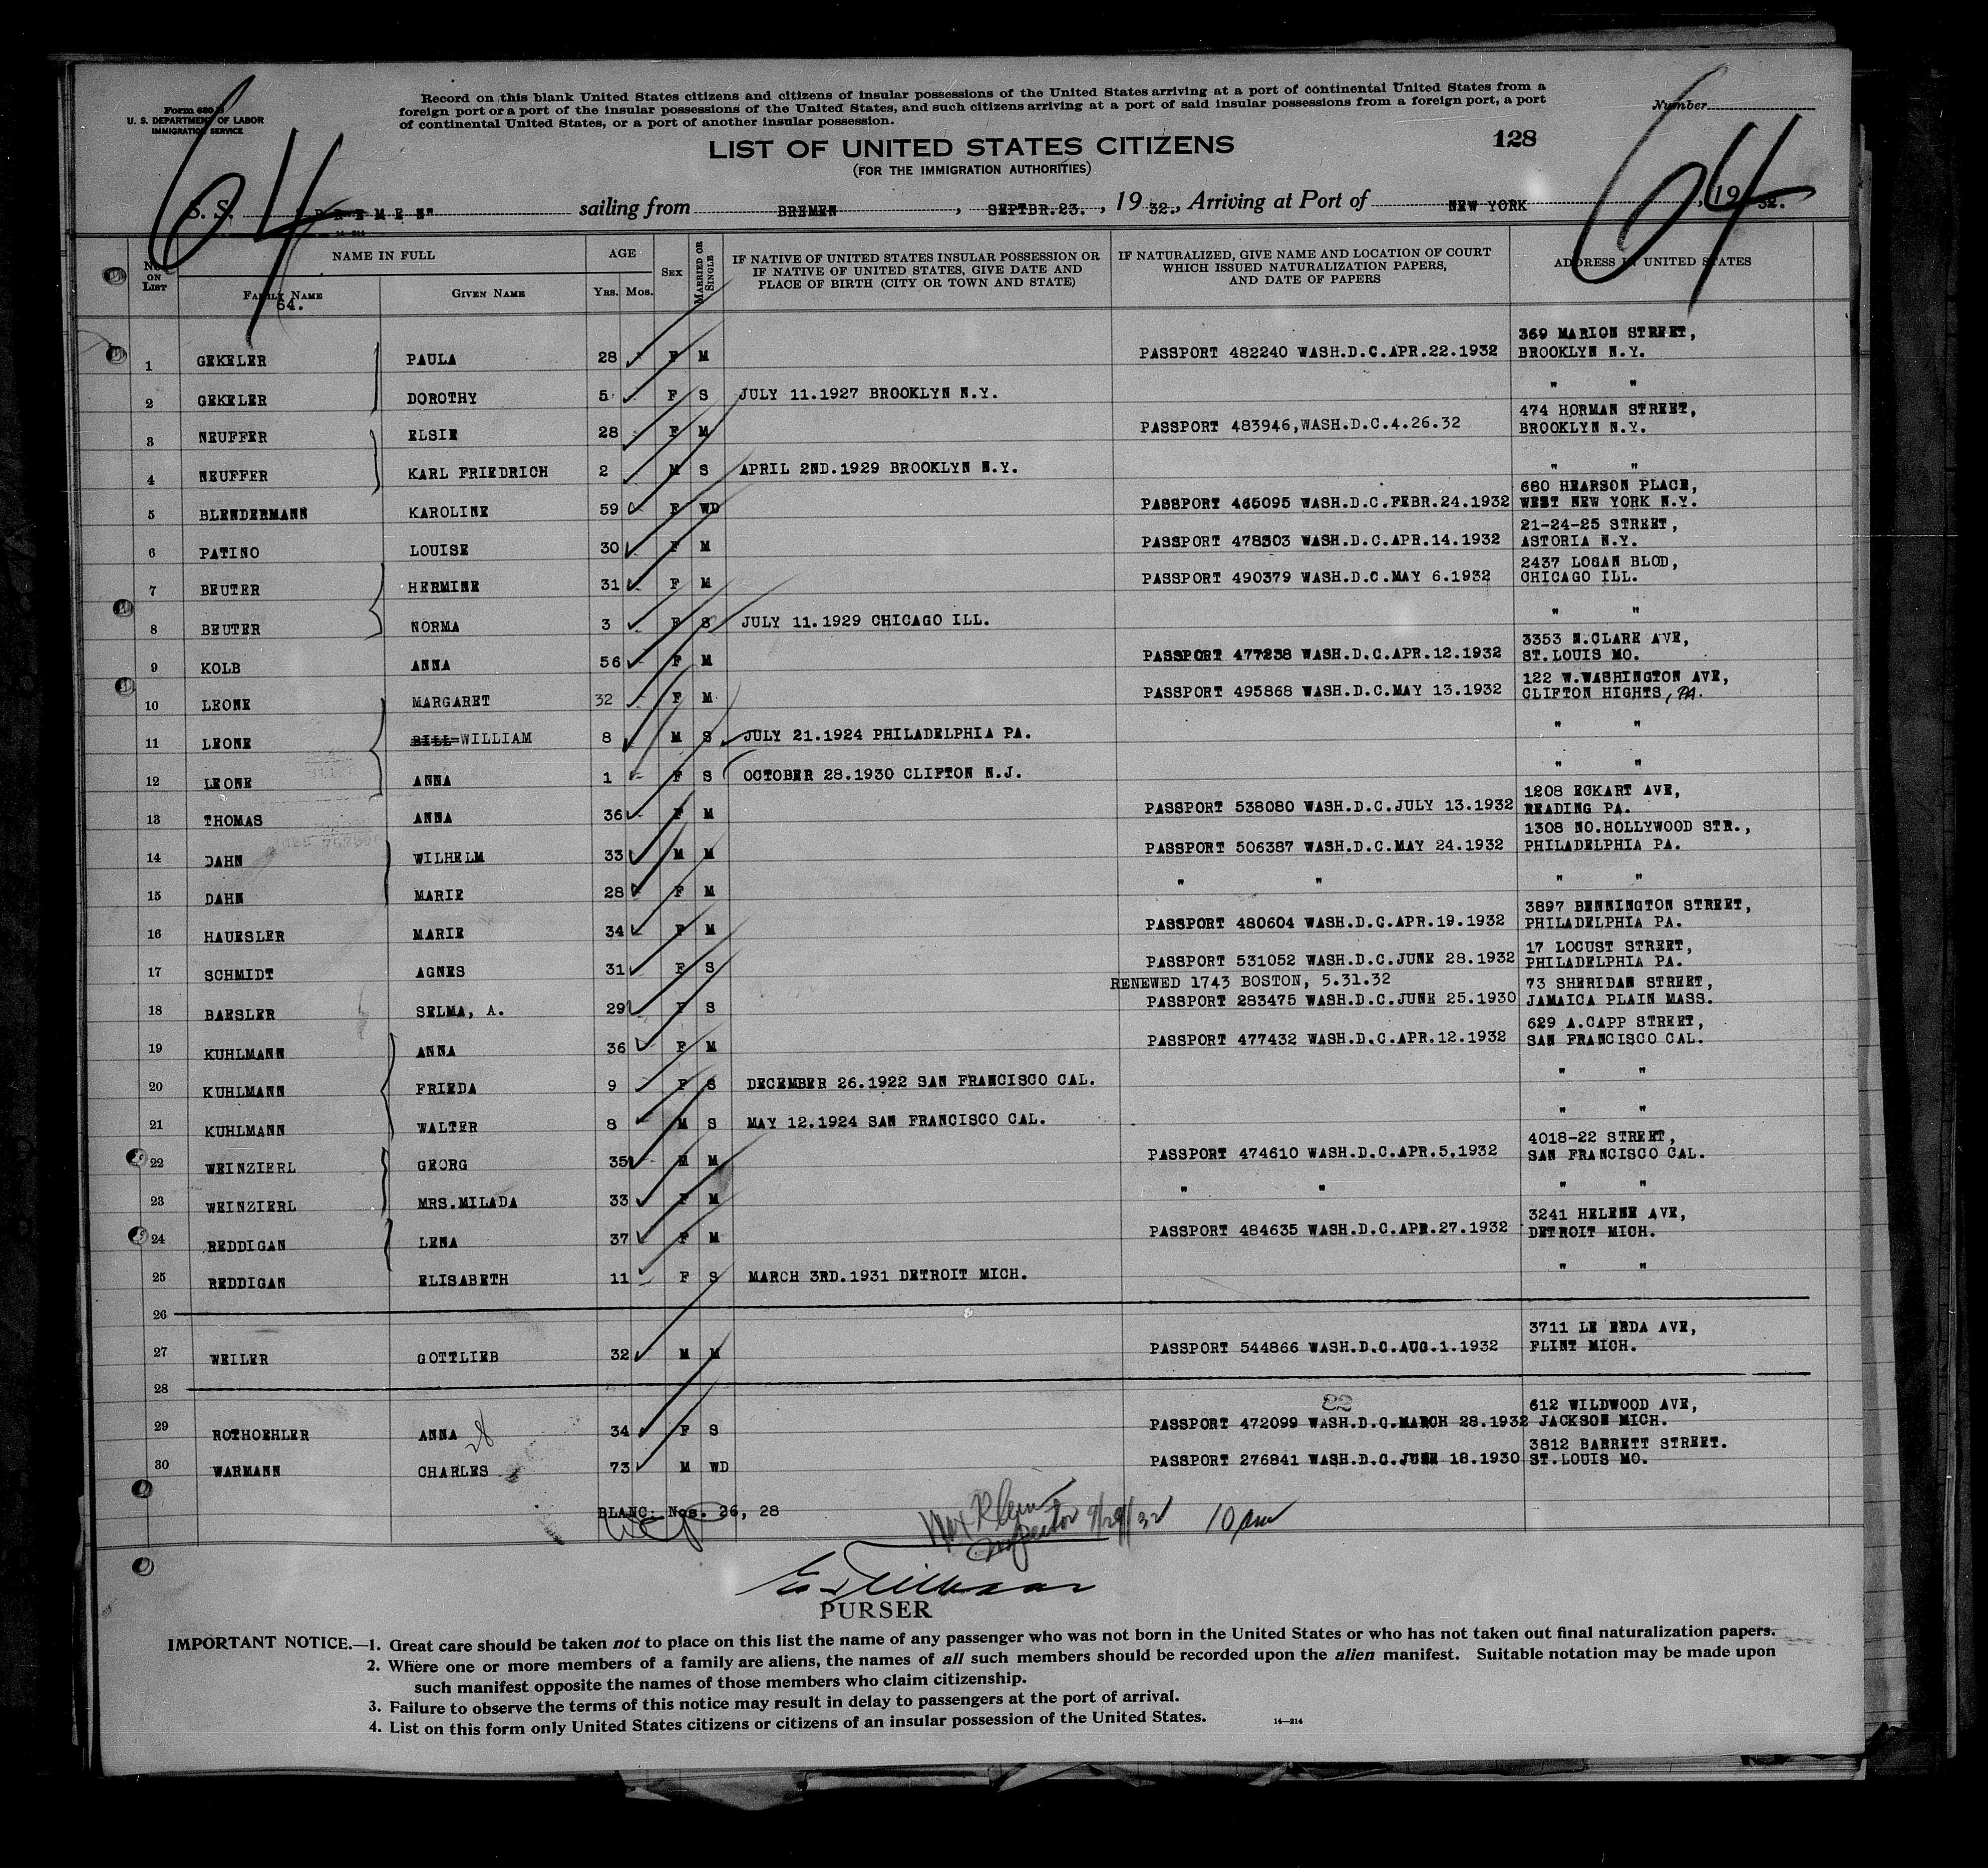 Form 630 B
U. S. DEPARTMENT OF LABOR
IMMIGRATION SERVICE
Record on this blank United States citizens and citizens of insular possessions of the United States arriving at a port of continental United States from a
foreign port or a port of the insular possessions of the United States, and such citizens arriving at a port of said insular possessions from a foreign port, a port
of continental United States, or a port of another insular possession.
Number
64
64
LIST OF UNITED STATES CITIZENS
128
(FOR THE IMMIGRATION AUTHORITIES)
S. S. BREMEN" sailing from BREMEN, SEPTBR.23., 19 32., Arriving at Port of NEW YORK, 19 32.
14-214
No. ON LIST
NAME IN FULL
FAMILY NAME
GIVEN NAME
AGE
YRS. MOS.
SEX
MARRIED OR SINGLE
IF NATIVE OF UNITED STATES INSULAR POSSESSION OR
IF NATIVE OF UNITED STATES, GIVE DATE AND
PLACE OF BIRTH (CITY OR TOWN AND STATE)
IF NATURALIZED, GIVE NAME AND LOCATION OF COURT
WHICH ISSUED NATURALIZATION PAPERS,
AND DATE OF PAPERS
ADDRESS IN UNITED STATES
64.
369 MARION STREET,
1 GEKELER PAULA 28 F M PASSPORT 482240 WASH.D.C.APR.22.1932 BROOKLYN N.Y.
2 GEKELER DOROTHY 5 F S JULY 11.1927 BROOKLYN N.Y. " "
474 HORMAN STREET,
3 NEUFFER ELSIE 28 F M PASSPORT 483946,WASH.D.C.4.26.32 BROOKLYN N.Y.
4 NEUFFER KARL FRIEDRICH 2 M S APRIL 2ND.1929 BROOKLYN N.Y. " "
680 HEARSON PLACE,
5 BLENDERMANN KAROLINE 59 F WD PASSPORT 465095 WASH.D.C.FEBR.24.1932 WEST NEW YORK N.Y.
21-24-25 STREET,
6 PATINO LOUISE 30 F M PASSPORT 478303 WASH.D.C.APR.14.1932 ASTORIA N.Y.
2437 LOGAN BLOD,
7 BEUTER HERMINE 31 F M PASSPORT 490379 WASH.D.C.MAY 6.1932 CHICAGO ILL.
8 BEUTER NORMA 3 F S JULY 11.1929 CHICAGO ILL. " "
3353 N.CLARK AVE,
9 KOLB ANNA 56 F M PASSPORT 477238 WASH.D.C.APR.12.1932 ST.LOUIS MO.
122 W.WASHINGTON AVE,
10 LEONE MARGARET 32 F M PASSPORT 495868 WASH.D.C.MAY 13.1932 CLIFTON HIGHTS, PA.
11 LEONE BILL=WILLIAM 8 M S JULY 21.1924 PHILADELPHIA PA. " "
12 LEONE ANNA 1 F S OCTOBER 28.1930 CLIFTON N.J. " "
1208 ECKART AVE,
13 THOMAS ANNA 36 F M PASSPORT 538080 WASH.D.C.JULY 13.1932 READING PA.
1308 NO.HOLLYWOOD STR.,
14 DAHN WILHELM 33 M M PASSPORT 506387 WASH.D.C.MAY 24.1932 PHILADELPHIA PA.
15 DAHN MARIE 28 F M " " " "
3897 BENNINGTON STREET,
16 HAUESLER MARIE 34 F M PASSPORT 480604 WASH.D.C.APR.19.1932 PHILADELPHIA PA.
17 LOCUST STREET,
17 SCHMIDT AGNES 31 F S PASSPORT 531052 WASH.D.C.JUNE 28.1932 PHILADELPHIA PA.
RENEWED 1743 BOSTON, 5.31.32 73 SHERIDAN STREET,
18 BAESLER SELMA, A. 29 F S PASSPORT 283475 WASH.D.C.JUNE 25.1930 JAMAICA PLAIN MASS.
629 A.CAPP STREET,
19 KUHLMANN ANNA 36 F M PASSPORT 477432 WASH.D.C.APR.12.1932 SAN FRANCISCO CAL.
20 KUHLMANN FRIEDA 9 F S DECEMBER 26.1922 SAN FRANCISCO CAL. " "
21 KUHLMANN WALTER 8 M S MAY 12.1924 SAN FRANCISCO CAL. " "
4018-22 STREET,
22 WEINZIERL GEORG 35 M M PASSPORT 474610 WASH.D.C.APR.5.1932 SAN FRANCISCO CAL.
23 WEINZIERL MRS.MILADA 33 F M " " " "
3241 HELENE AVE,
24 REDDIGAN LENA 37 F M PASSPORT 484635 WASH.D.C.APR.27.1932 DETROIT MICH.
25 REDDIGAN ELISABETH 11 F S MARCH 3RD.1931 DETROIT MICH. " "
26
3711 LE ERDA AVE,
27 WEILER GOTTLIEB 32 M M PASSPORT 544866 WASH.D.C.AUG.1.1932 FLINT MICH.
28
22 612 WILDWOOD AVE,
29 ROTHOEHLER ANNA 28 34 F S PASSPORT 472099 WASH.D.C.MARCH 28.1932 JACKSON MICH.
3812 BARRETT STREET.
30 WARMANN CHARLES 73 M WD PASSPORT 276841 WASH.D.C.JUNE 18.1930 ST.LOUIS MO.
BLANC: Nos. 26, 28
Inspector 9/29/32 10 am
PURSER
IMPORTANT NOTICE.—1. Great care should be taken not to place on this list the name of any passenger who was not born in the United States or who has not taken out final naturalization papers.
2. Where one or more members of a family are aliens, the names of all such members should be recorded upon the alien manifest. Suitable notation may be made upon
such manifest opposite the names of those members who claim citizenship.
3. Failure to observe the terms of this notice may result in delay to passengers at the port of arrival.
4. List on this form only United States citizens or citizens of an insular possession of the United States.
14—214